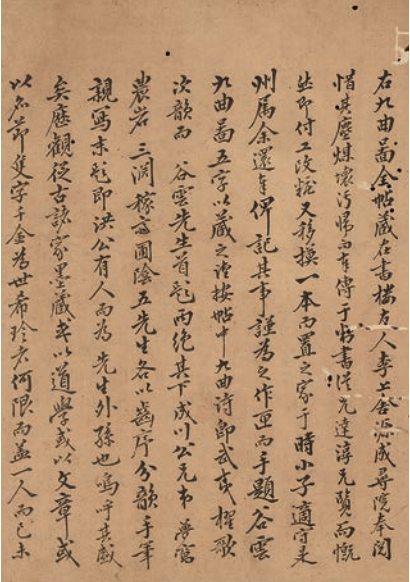 右九曲圖全帖藏在書楼友人李上舍源成尋院奉閱
惜其塵煤壞污歸而有傳于書從先達淳元覽而慨
然即付工改粧又移摸一本而置之家于時小子適守是
州属余還之俾記其事謹為之作匣而手題谷雲
九曲圖五字以藏之謹按帖中九曲诗即武夷櫂歌
次韻而 谷雲先生首起而絶其下成川公元布夢窩
農岩 三洞稼齋圃陰五先生各以齒序分韻手筆
親寫末起即洪公有人而為先生外孫也嗚呼其盛
矣歷觀従古諸家墨蔵或以道學或以文章或
以名節隻字千金為世希珍者何限而盖一人而已未